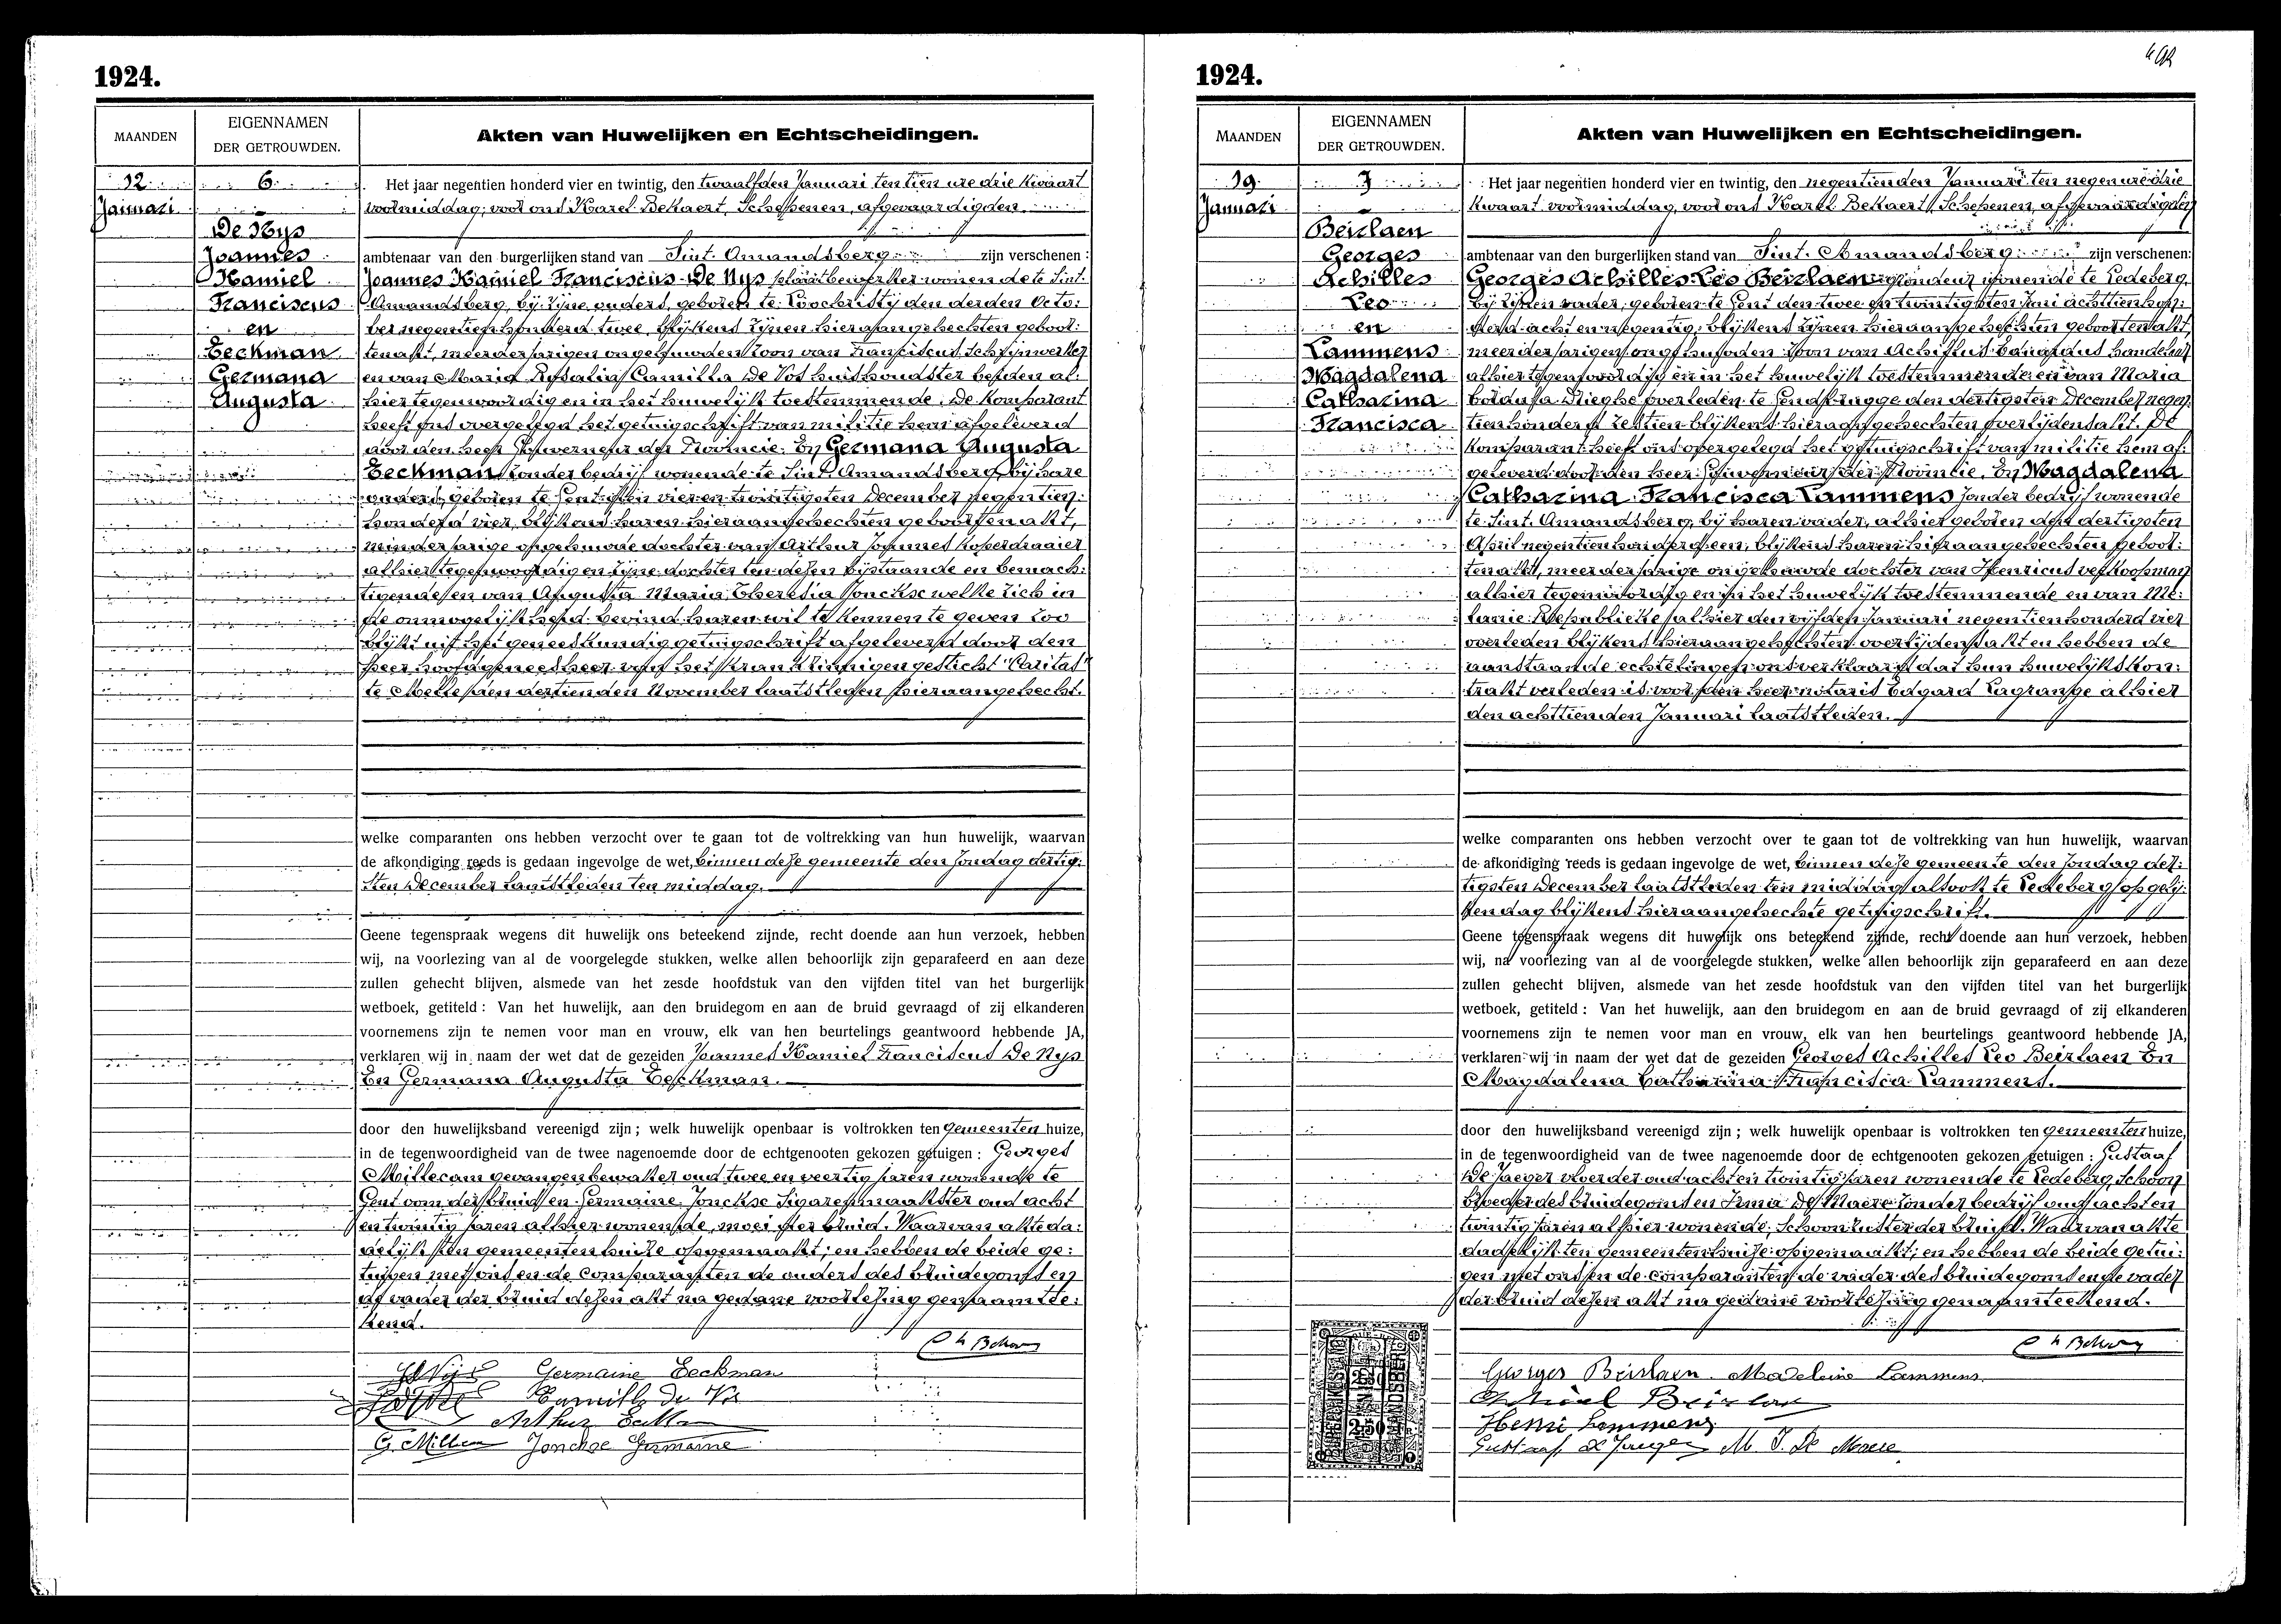 1924.
MAANDEN
EIGENNAMEN
DER GETROUWDEN.
Akten van Huwelijken en Echtscheidingen.
12
Januari
6
De Nys
Joannes
Kamiel
Franciscus
en
Eeckman
Germana
Augusta
Het jaar negentien honderd vier en twintig, den twaalfden Januari ten tien ure drie kwaart
voormiddag, voor ons Karel Bekaert, Schepenen, afgevaardigden
ambtenaar van den burgerlijken stand van Sint-Amandsberg zijn verschenen:
Joannes Kamiel Franciscus De Nys plaatbewerker wonende te Sint-
Amandsberg, bij zijne ouders, geboren te Loochristij den derden Octo:
ber negentienhonderd twee, blijkens zijnen hieraangehechten geboor:
tenakt, meerderjarigen ongehuwden zoon van Franciscus, schrijnwerker
en van Maria Rosalia Camilla De Vos huishoudster beiden al:
hier tegenwoordig en in het huwelijk toestemmende. De komparant
heeft ons overgelegd het getuigschrift van militie hem afgeleverd
door den heer Gouverneur der Provincie. En Germana Augusta
Eeckman, zonder bedrijf wonende te Sint-Amandsberg, bij hare
ouders, geboren te Gent, den vier en twintigsten December negentien:
honderd vier, blijkens haren hieraangehechten geboortenakt,
minderjarige ongehuwde dochter van Arthur Joannes koperdraaier
alhier tegenwoordig en zijne dochter ten dezen bijstaande en bemach:
tigende en van Augusta Maria Theresia Jonckse welke zich in
de onmogelijkheid bevind haren wil te kennen te geven zoo
blijkt uit het geneeskundig getuigschrift afgeleverd door den
heer hoofdgeneesheer van het krankzinnigengesticht "Caritas"
te Melle, den dertienden November laatstleden hieraangehecht.
welke comparanten ons hebben verzocht over te gaan tot de voltrekking van hun huwelijk, waarvan
de afkondiging reeds is gedaan ingevolge de wet, binnen deze gemeente den Zondag dertig:
sten December laatstleden ten middag.
Geene tegenspraak wegens dit huwelijk ons beteekend zijnde, recht doende aan hun verzoek, hebben
wij, na voorlezing van al de voorgelegde stukken, welke allen behoorlijk zijn geparafeerd en aan deze
zullen gehecht blijven, alsmede van het zesde hoofdstuk van den vijfden titel van het burgerlijk
wetboek, getiteld : Van het huwelijk, aan den bruidegom en aan de bruid gevraagd of zij elkanderen
voornemens zijn te nemen voor man en vrouw, elk van hen beurtelings geantwoord hebbende JA,
verklaren wij in naam der wet dat de gezeiden Joannes Kamiel Franciscus De Nys
En Germana Augusta Eeckman.
door den huwelijksband vereenigd zijn ; welk huwelijk openbaar is voltrokken ten gemeenten huize,
in de tegenwoordigheid van de twee nagenoemde door de echtgenooten gekozen getuigen : Georges
Millecam gevangenbewaker oud twee en veertig jaren wonende te
Gent oom der bruid en Germaine Jonckse Sigarenmaakster oud acht
en twintig jaren alhier wonende, moei der bruid. Waarvan akte da:
delijk ten gemeentenhuize opgemaakt; en hebben de beide ge:
tuigen met ons en de comparanten de ouders des bruidegoms en
de vader der bruid dezen akt na gedane voorlezing genaamtee:
kend.
Germaine Eeckman
Camilla De Vos
Arthur Eeckman
G. Millecam Jonckse Germaine
1924.
MAANDEN
EIGENNAMEN
DER GETROUWDEN.
Akten van Huwelijken en Echtscheidingen.
19
Januari
7
Beirlaen
Georges
Achilles
Leo
en
Lammens
Magdalena
Catharina
Francisca
Het jaar negentien honderd vier en twintig, den negentienden Januari ten negen ure drie
kwaart voormiddag, voor ons Karel Bekaert, Schepenen, afgevaardigden
ambtenaar van den burgerlijken stand van Sint-Amandsberg zijn verschenen:
Georges Achilles Leo Beirlaen wonende te Ledeberg,
bij zijnen vader, geboren te Gent den twee en twintigsten Juni achttienhon:
derd acht en negentig, blijkens zijnen hieraangehechten geboortenakt,
meerderjarigen ongehuwden zoon van Achillus Eduardus handelaar
alhier tegenwoordig en in het huwelijk toestemmende en van Maria
Dieghe overleden te Gendbrugge den dertigsten December negen:
tienhonderd zestien blijkens hieraangehechten overlijdensakt. De
komparant heeft ons overgelegd het getuigschrift van militie hem af:
geleverd door den heer Gouverneur der Provincie. En Magdalena
Catharina Francisca Lammens zonder bedrijf wonende
te Sint-Amandsberg, bij haren vader, alhier geboren den dertigsten
April negentienhonderd een, blijkens haren hieraangehechten geboor:
tenakt, meerderjarige ongehuwde dochter van Henricus verkoopman
alhier tegenwoordig en in het huwelijk toestemmende en van Me:
lanie alhier den vijfden Januari negentienhonderd vier
overleden blijkens hieraangehechten overlijdensakt en hebben de
aanstaande echtelingen ons verklaard dat hun huwelijkskon:
trakt verleden is voor den heer notaris Edgard Lagrange alhier
den achttienden Januari laatstleden.
welke comparanten ons hebben verzocht over te gaan tot de voltrekking van hun huwelijk, waarvan
de afkondiging reeds is gedaan ingevolge de wet, binnen deze gemeente den Zondag der:
tigsten December laatstleden ten middag alsook te Ledeberg op gelij:
ken dag blijkens hieraangehechte getuigschrift.
Geene tegenspraak wegens dit huwelijk ons beteekend zijnde, recht doende aan hun verzoek, hebben
wij, na voorlezing van al de voorgelegde stukken, welke allen behoorlijk zijn geparafeerd en aan deze
zullen gehecht blijven, alsmede van het zesde hoofdstuk van den vijfden titel van het burgerlijk
wetboek, getiteld : Van het huwelijk, aan den bruidegom en aan de bruid gevraagd of zij elkanderen
voornemens zijn te nemen voor man en vrouw, elk van hen beurtelings geantwoord hebbende JA,
verklaren wij in naam der wet dat de gezeiden Georges Achilles Leo Beirlaen En
Magdalena Catharina Francisca Lammens.
door den huwelijksband vereenigd zijn ; welk huwelijk openbaar is voltrokken ten gemeenten huize,
in de tegenwoordigheid van de twee nagenoemde door de echtgenooten gekozen getuigen : Gustaaf
De Jaeger vloerder oud acht en twintig jaren wonende te Ledeberg, schoon
broeder des bruidegoms en Irma De Maere zonder bedrijf oud acht en
twintig jaren alhier wonende, schoonzuster der bruid. Waarvan akte
dadelijk ten gemeentenhuize opgemaakt; en hebben de beide getui:
gen met ons en de comparanten de vader des bruidegoms en de vader
der bruid dezen akt na gedane voorlezing genaamteekend.
Georges Beirlaen Madeleine Lammens
Achiel Beirlaen
Henri Lammens
Gustaaf de Jaeger M. I. De Maere